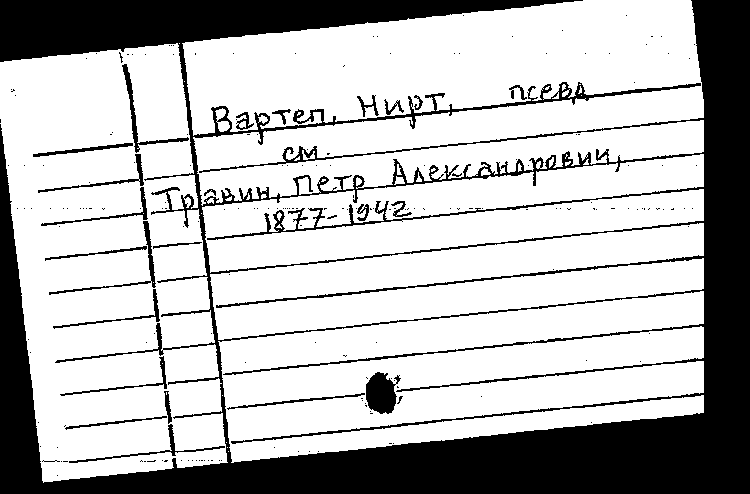 Вартеп, Нирт, псевд
см.
Травин, Петр Александрович,
1877-1942